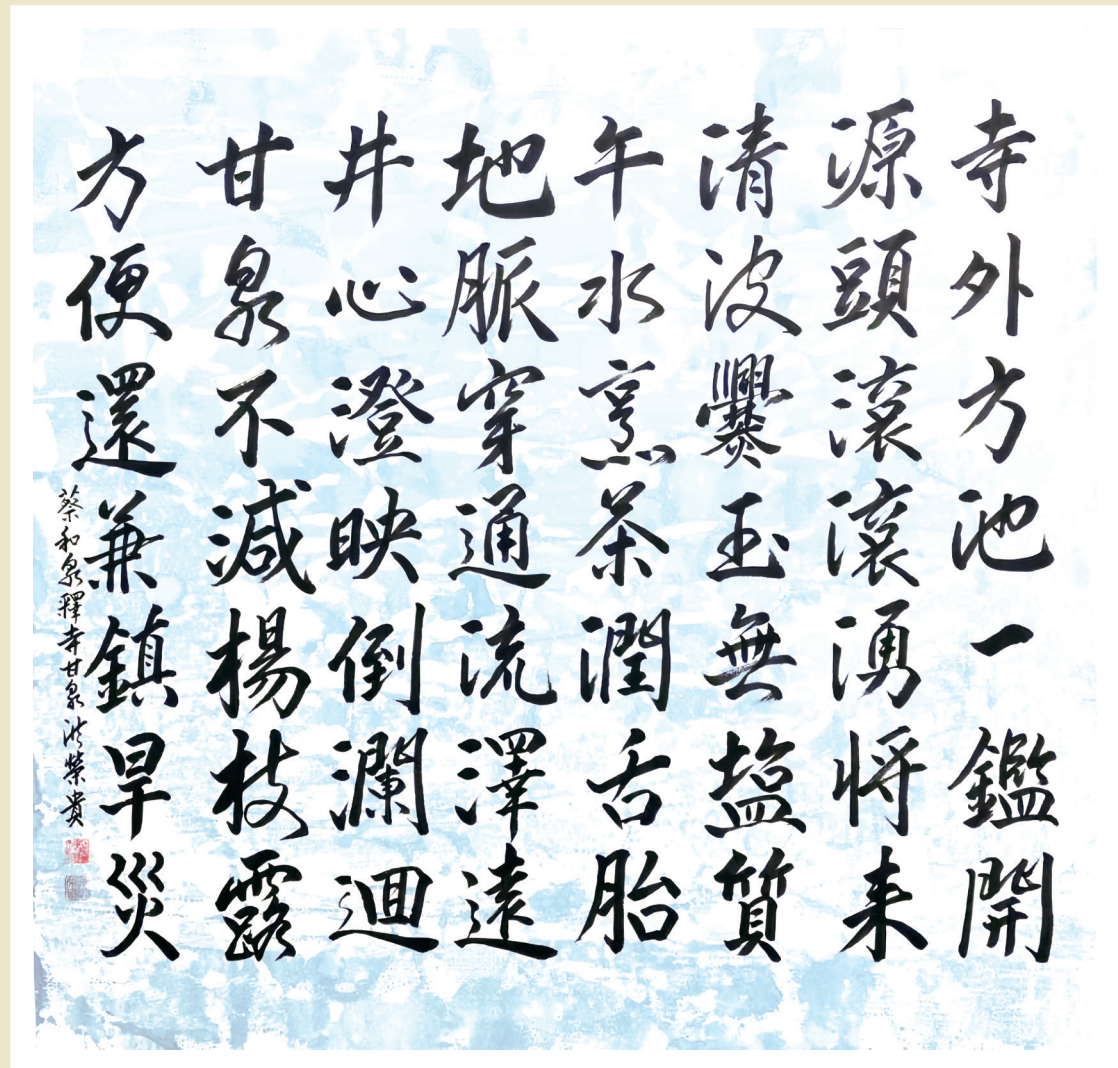 寺外方池一鑑開
源頭滾滾湧將来
清波爨玉無塩質
午水烹茶潤舌胎
地脈穿通流澤遠
井心澄映倒瀾迴
甘泉不減楊枝露
方便還兼鎮旱災
蔡和泉釋寺甘泉 洪榮貴